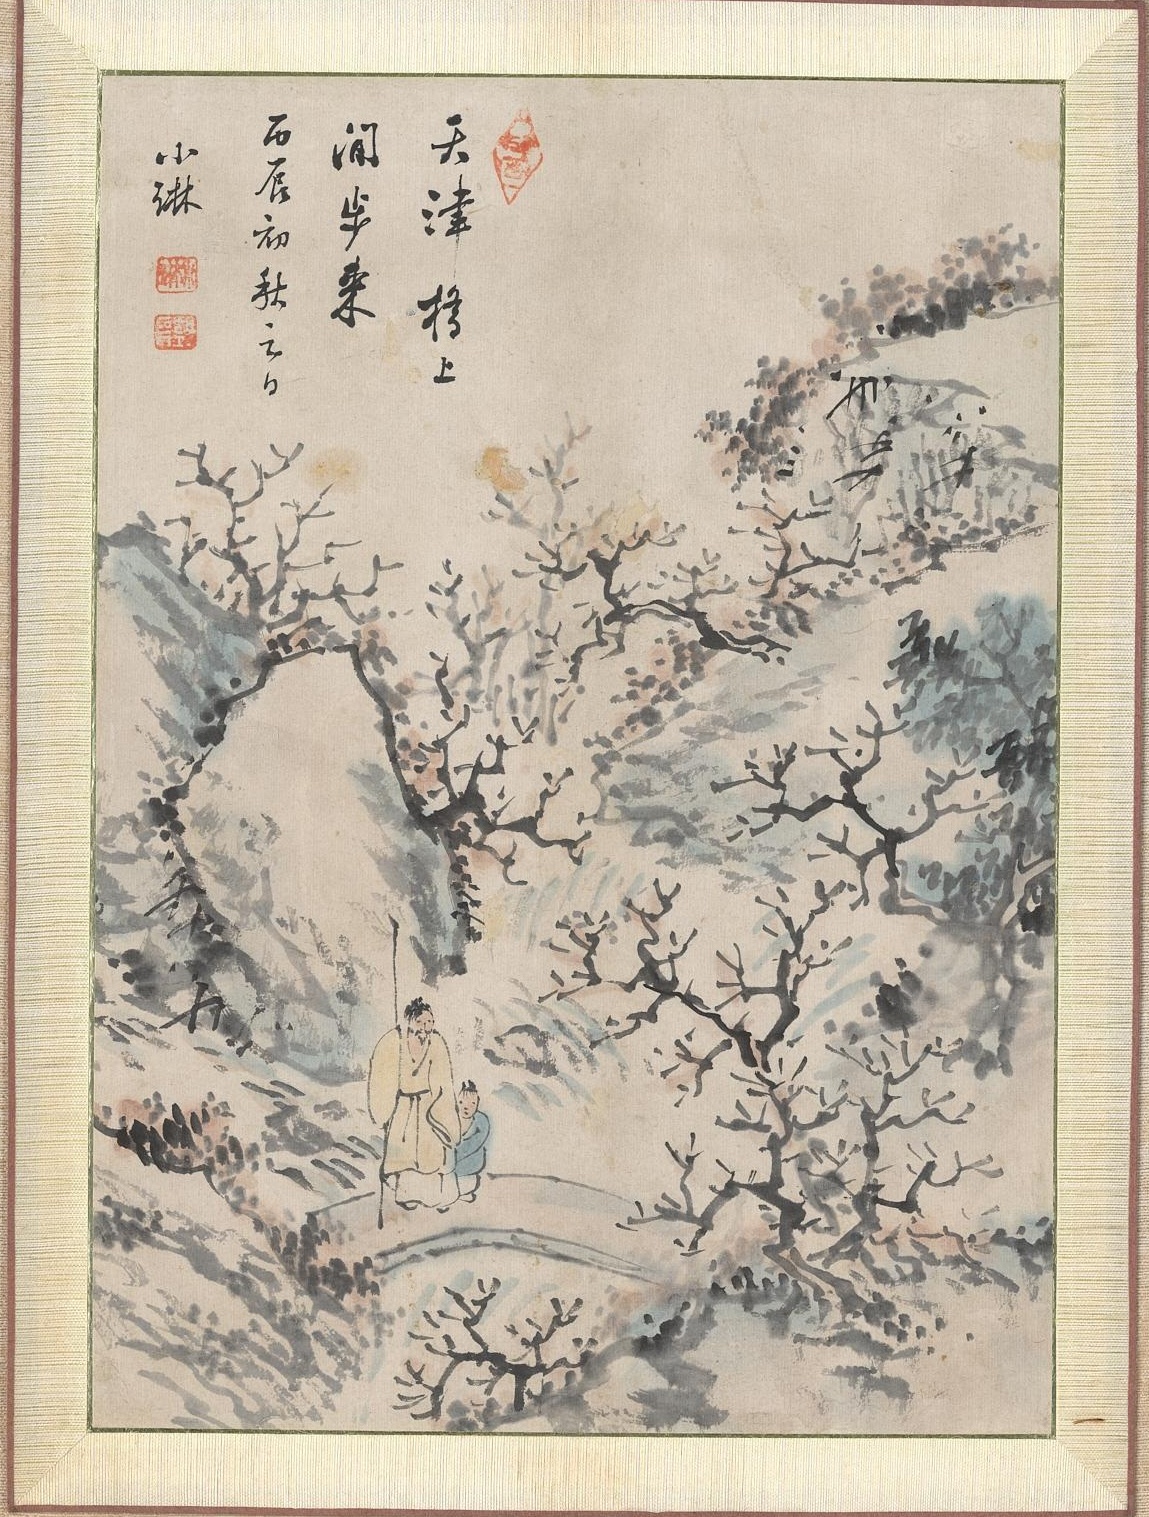 天津橋上
澗步來
丙辰初秋之日
小琳